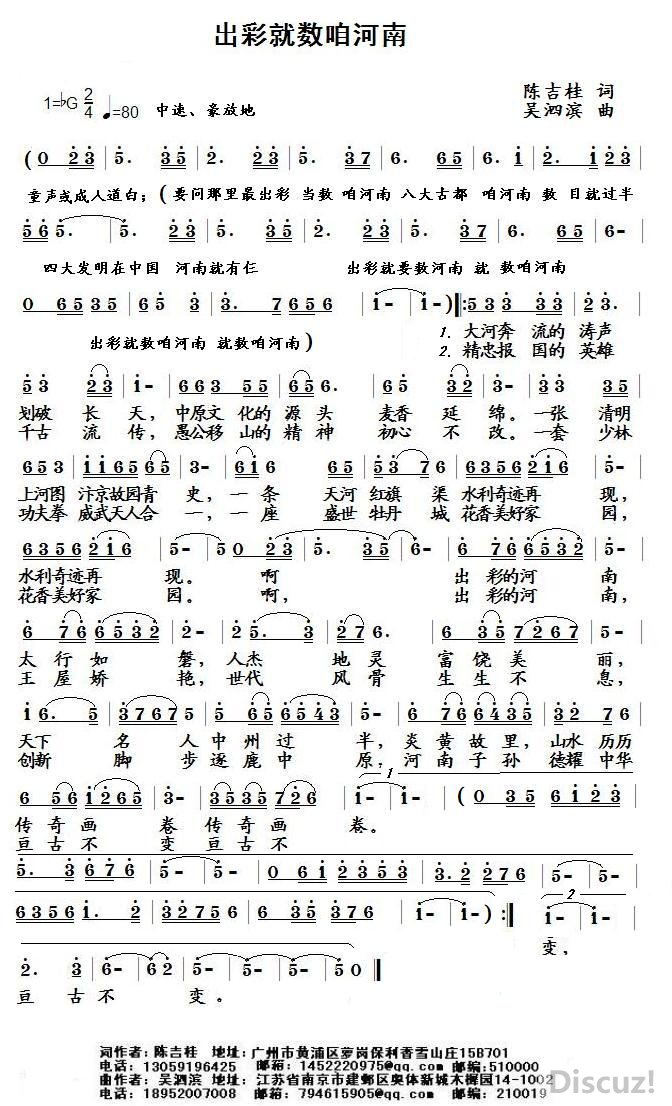 出彩就数咱河南
陈吉桂 词
1=♭G 2/4 ♩=80 中速、豪放地
吴泗滨 曲
(0 23|5. 35|2. 23|5. 37|6. 65|6. i|2. i23|
童声或成人道白；(要问那里最出彩 当数 咱河南 八大古都 咱河南 数 目就过半
565.|5. 23|5. 35|2. 23|5. 65|6-|
四大发明在中国 河南就有仨 出彩就要数河南 就 数咱河南
0 6535|65.|3. 7656|i-|i-):‖:533 33|23.|
出彩就数咱河南 就数咱河南)
1. 大河奔 流的 涛声
2. 精忠报 国的 英雄
53 23|i-|663 55|66 i|65 32|3. 35|
划破 长 天，中原文 化的 源 头 麦香 延 绵。一张 清明
千古 流 传，愚公移 山的 精 神 初心 不 改。一套 少林
653|ii65 65|3- 6i6|53 76|6356 2i6|5-|
上河图 汴京故园青 史，一 条 天河 红旗 渠 水利奇迹再 现，
功夫拳 威武天人合 一，一 座 盛世 牡丹 城 花香美好家 园，
6356 2i6|5-|50 23|5. 35|6-|6 76|6532|
水利奇迹再 现。 啊 出 彩的河 南
花香美好家 园。 啊， 出 彩的河 南，
6 76|6532|2-|2. 3|276.|6 35|7267|
太 行 如 磐，人杰 地灵 富饶美 丽，
王 屋 娇 艳，世代 风骨 生生不 息，
i6. 5|3767|5-|5 65|6543|5-|6 76|635|32 76|
天下 名 人中州过 半，炎黄故里，山水 历历
创新 脚 步逐鹿中 原；河南子孙 德耀 中华
1
6 56|i265|3-|3535|726|i-|i-|(0 35|6i23|
传奇画 卷 传奇画 卷。
亘古不 变亘古不
5. 3|676|5-|5-|0 6i|2353|3. 2|276|5-|5-|
2
6356|i. 2|32756|6. 5|i-|i-):‖ i-|i-|
变，
2. 3|6-|62|5-|5-|5-|50‖
亘 古不 变。
词作者：陈吉桂 地址：广州市黄浦区萝岗保利香雪山庄15B701
电话：13059196425 邮箱：1452220975@qq.com 邮编：510000
曲作者：吴泗滨 地址：江苏省南京市建邺区奥体新城木樨园14-1002
电话：18952007008 邮箱：794615905@qq.com 邮编：210019
Discuz!